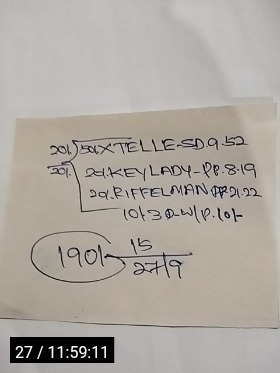 20/- 50/- XTELLE-SD.9.52
20/- 20/- KEYLADY-PP.8.19
20/- RIFFELMAN PP.21.22
10/- 3Q W/P.10/-
190/- 15
27/9
27 / 11:59:11